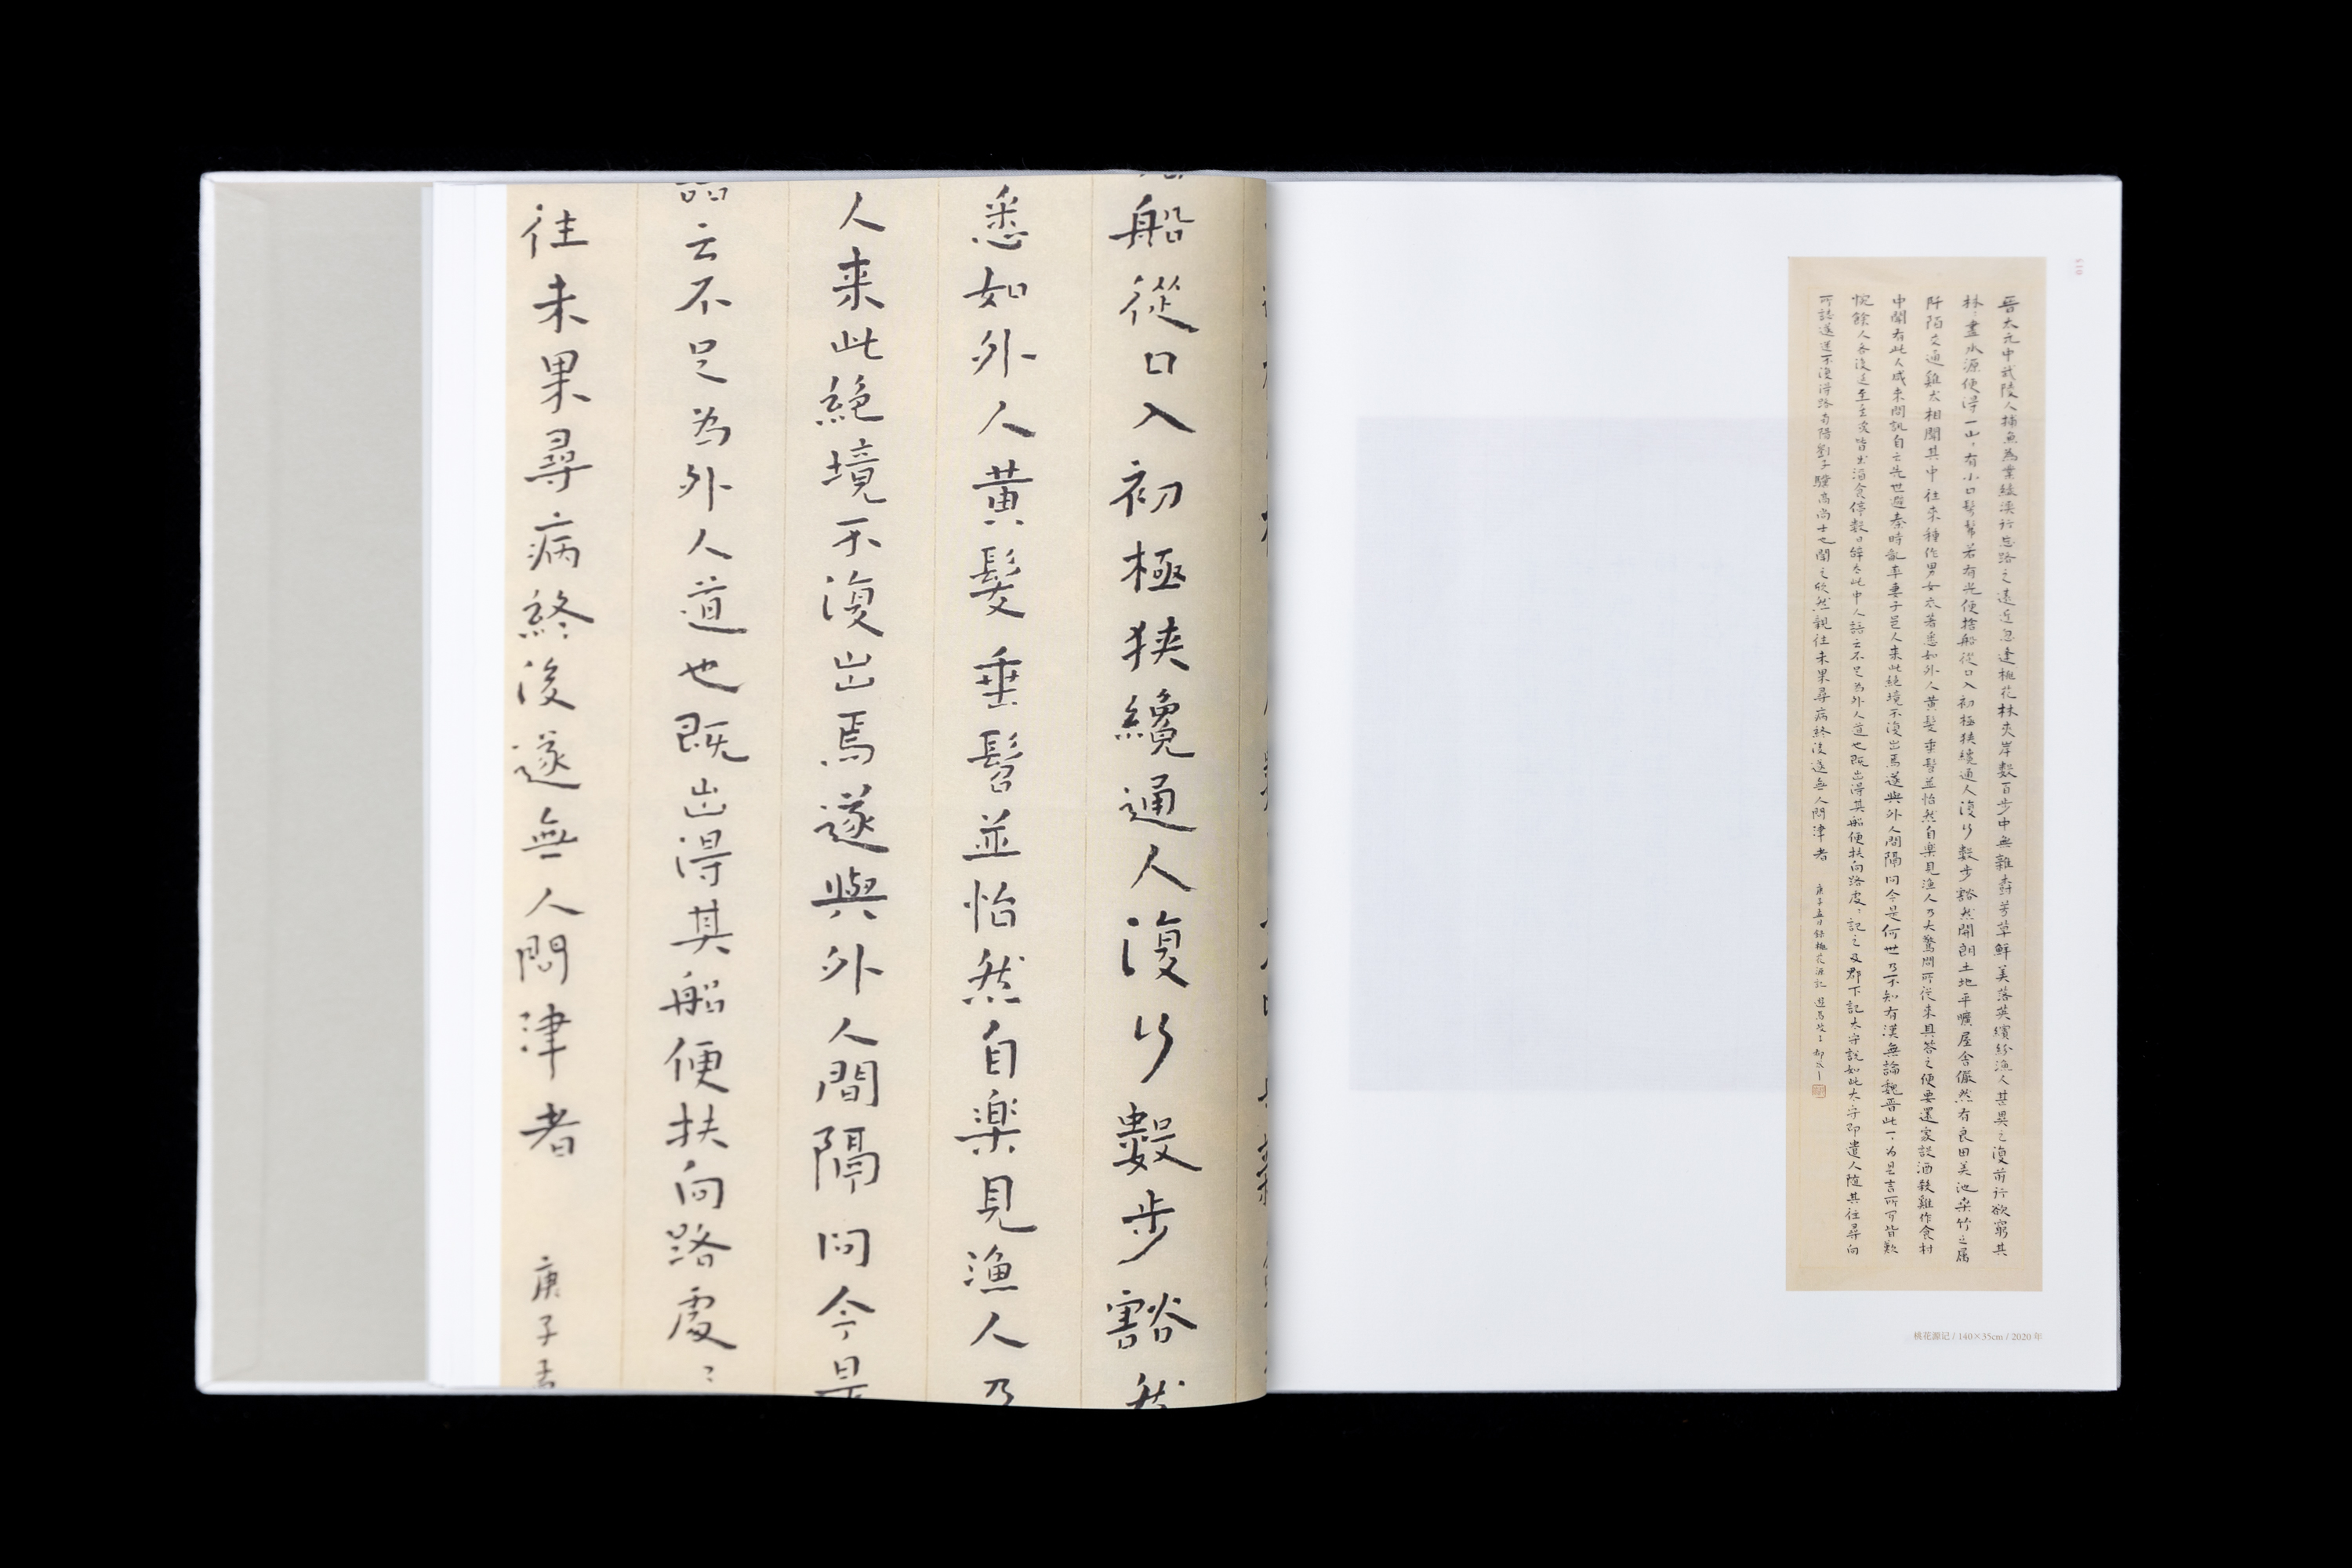 船從口入初極狹纔通人復行數步豁然
悉如外人黄髮垂髫並怡然自樂見漁人乃
人来此絶境不復出焉遂與外人間隔問今是
語云不足為外人道也既出得其船便扶向路處〻
往未果尋病終後遂無人問津者
庚子
晉太元中武陵人捕魚為業緣溪行忘路之遠近忽逢桃花林夾岸數百步中無雜樹芳草鮮美落英繽紛漁人甚異之復前行欲窮其
林〻盡水源便得一山〻有小口髣髴若有光便捨船從口入初極狹纔通人復行數步豁然開朗土地平曠屋舍儼然有良田美池桑竹之屬
阡陌交通雞犬相聞其中往來種作男女衣著悉如外人黄髮垂髫並怡然自樂見漁人乃大驚問所從來具答之便要還家設酒殺雞作食村
中聞有此人咸来問訊自云先世避秦時亂率妻子邑人来此絶境不復出焉遂與外人間隔問今是何世乃不知有漢無論魏晉此一〻為具言所聞皆歎
惋餘人各復延至皆出酒食停數日辭去此中人語云不足為外人道也既出得其船便扶向路處〻記之及郡下太守說如此太守即遣人隨其往尋向
所誌遂迷不復得路南陽劉子驥高尚士也聞之欣然親往未果尋病終後遂無人問津者
庚子五月錄桃花源記
桃花源记 / 140×35cm / 2020 年